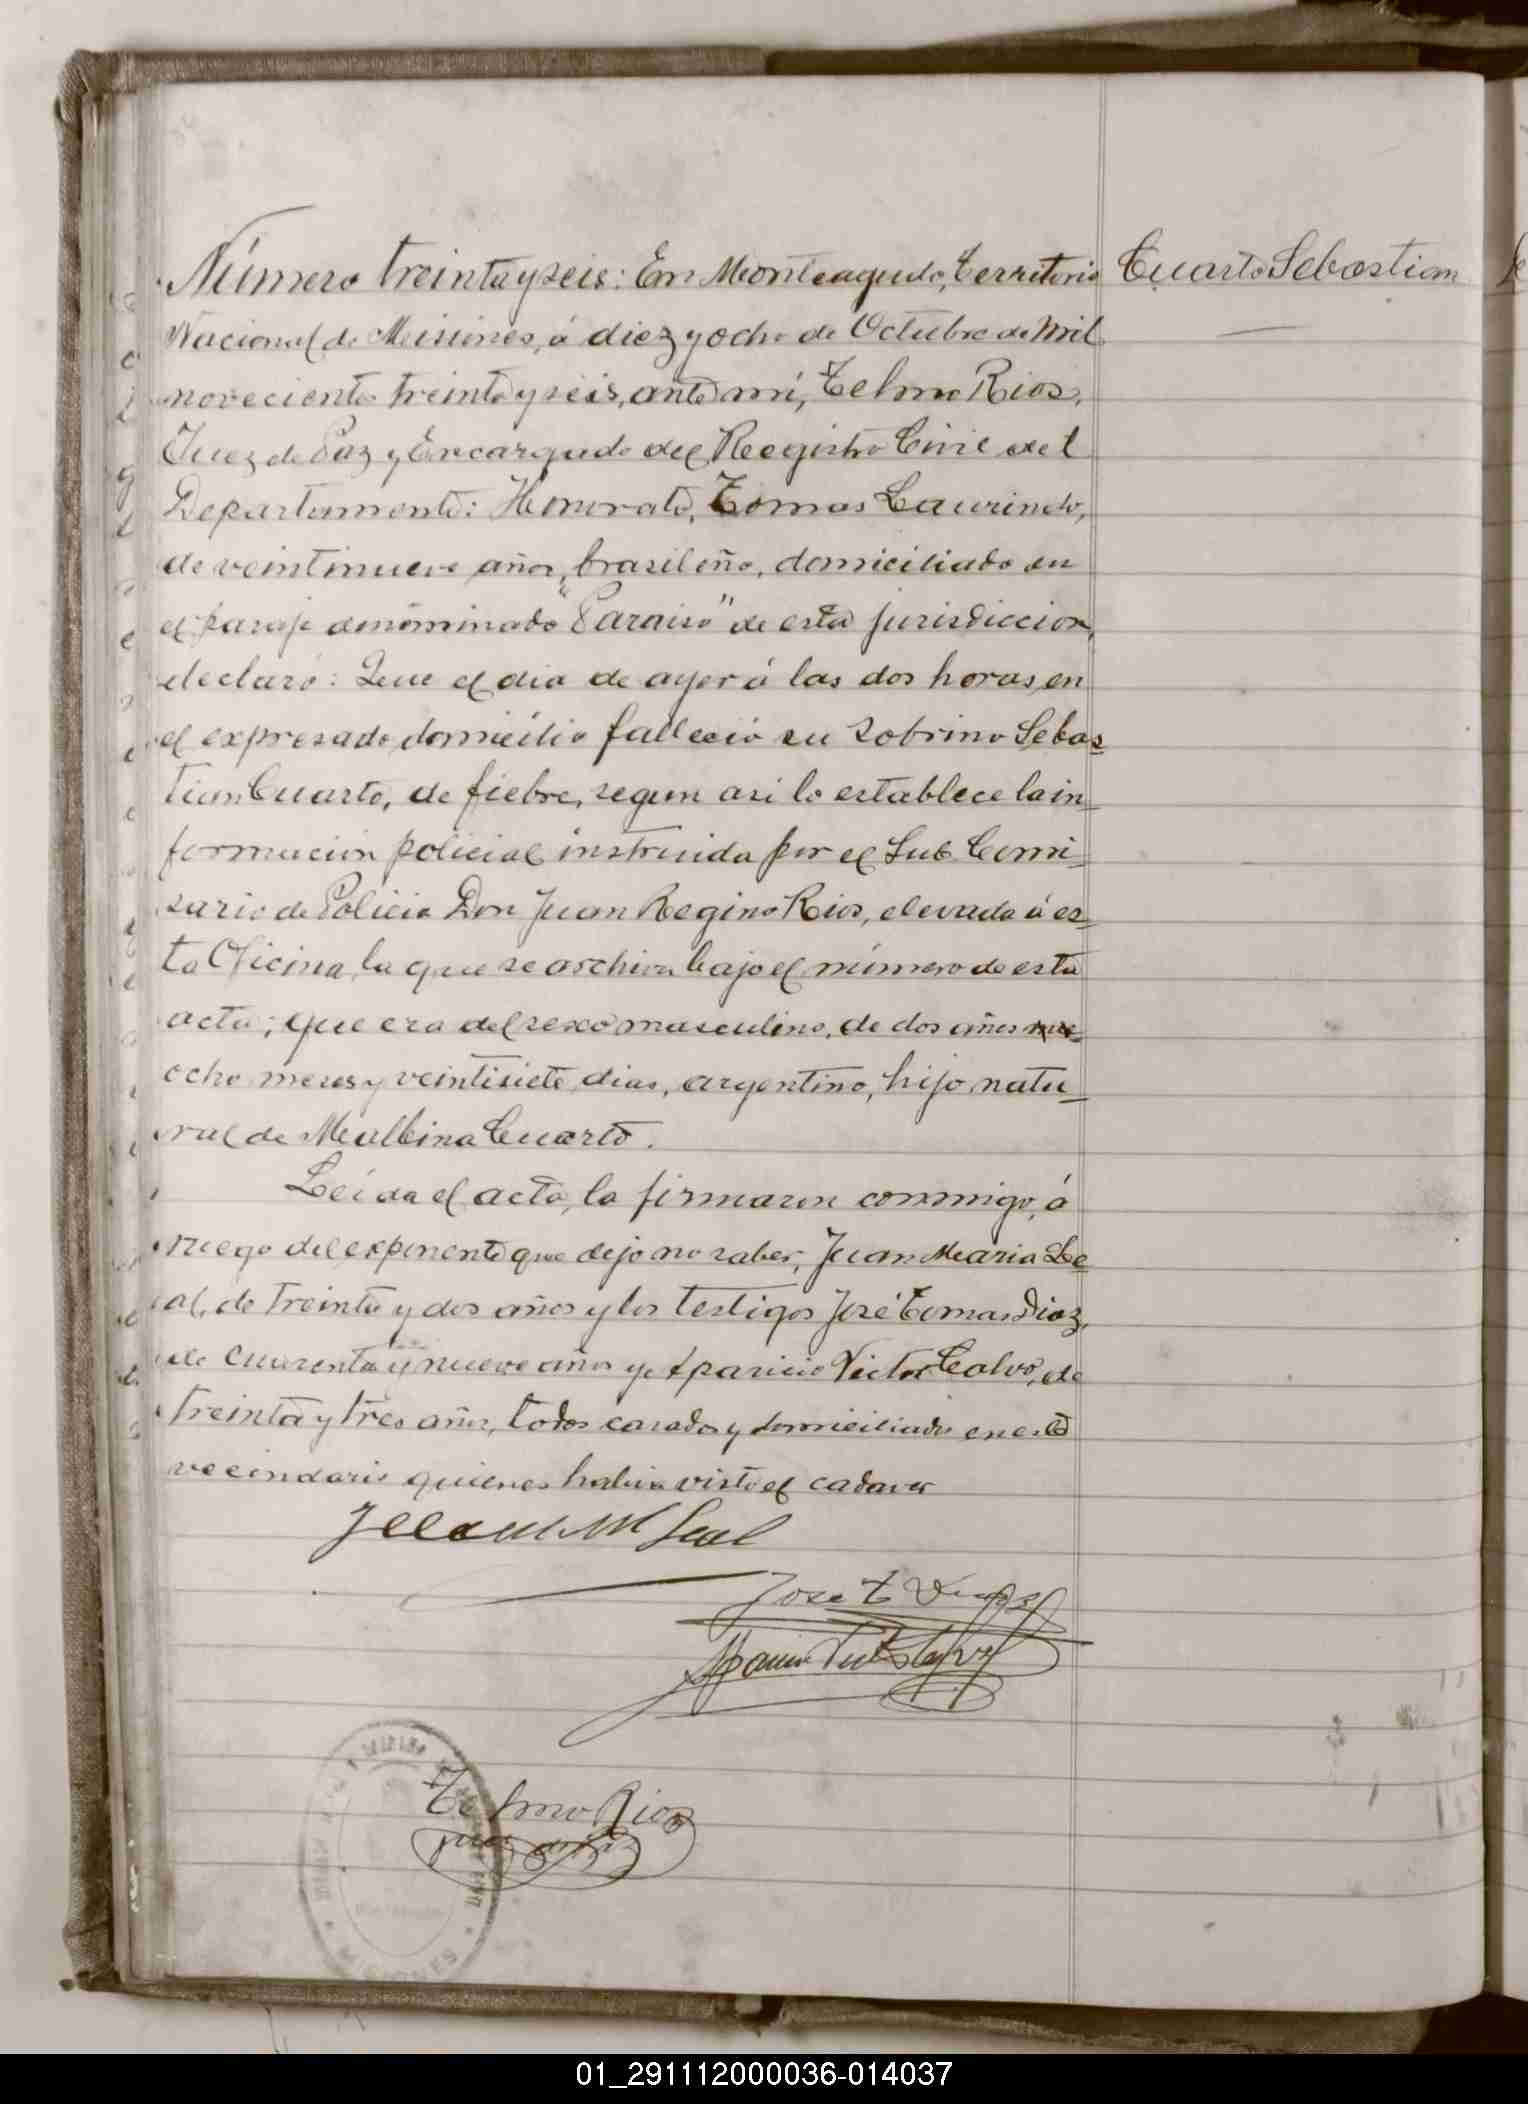 Número treinta y seis: En Monteagudo, Territorio
Cuarto Sebastian
Nacional de Misiones, á diez y ocho de Octubre de mil
novecientos treinta y seis, ante mi, Telmo Rios,
Juez de Paz y Encargado del Registro Civil del
Departamento: Honorato, Tomas Laurindo,
de veintinueve años, brasileño, domiciliado en
el paraje denominado "Paraiso" de esta jurisdiccion,
declaró: Que el dia de ayer á las dos horas en
el expresado domicilio falleció su sobrino Sebas-
tian Cuarto, de fiebre, segun asi lo establece la in-
formacion policial instruida por el Sub Comi-
sario de Policia Don Juan Regino Rios, elevada á es-
ta Oficina, la que se archiva bajo el número de esta
acta; que era del sexo masculino, de dos años
ocho meses y veintisiete dias, argentino, hijo natu-
ral de Malbina Cuarto.
Leida el acta, la firmaron conmigo, á
ruego del exponente que dijo no saber, Juan Maria Le-
al, de treinta y dos años y los testigos José Tomas Diaz,
de cuarenta y nueve años y Aparicio Victor Calvo, de
treinta y tres años, todos casados y domiciliados en este
vecindario quienes habia visto el cadaver
Juan M Leal
Jose T Diaz
Telmo Rios
Juez de Paz
MISIONES
01_291112000036-014037